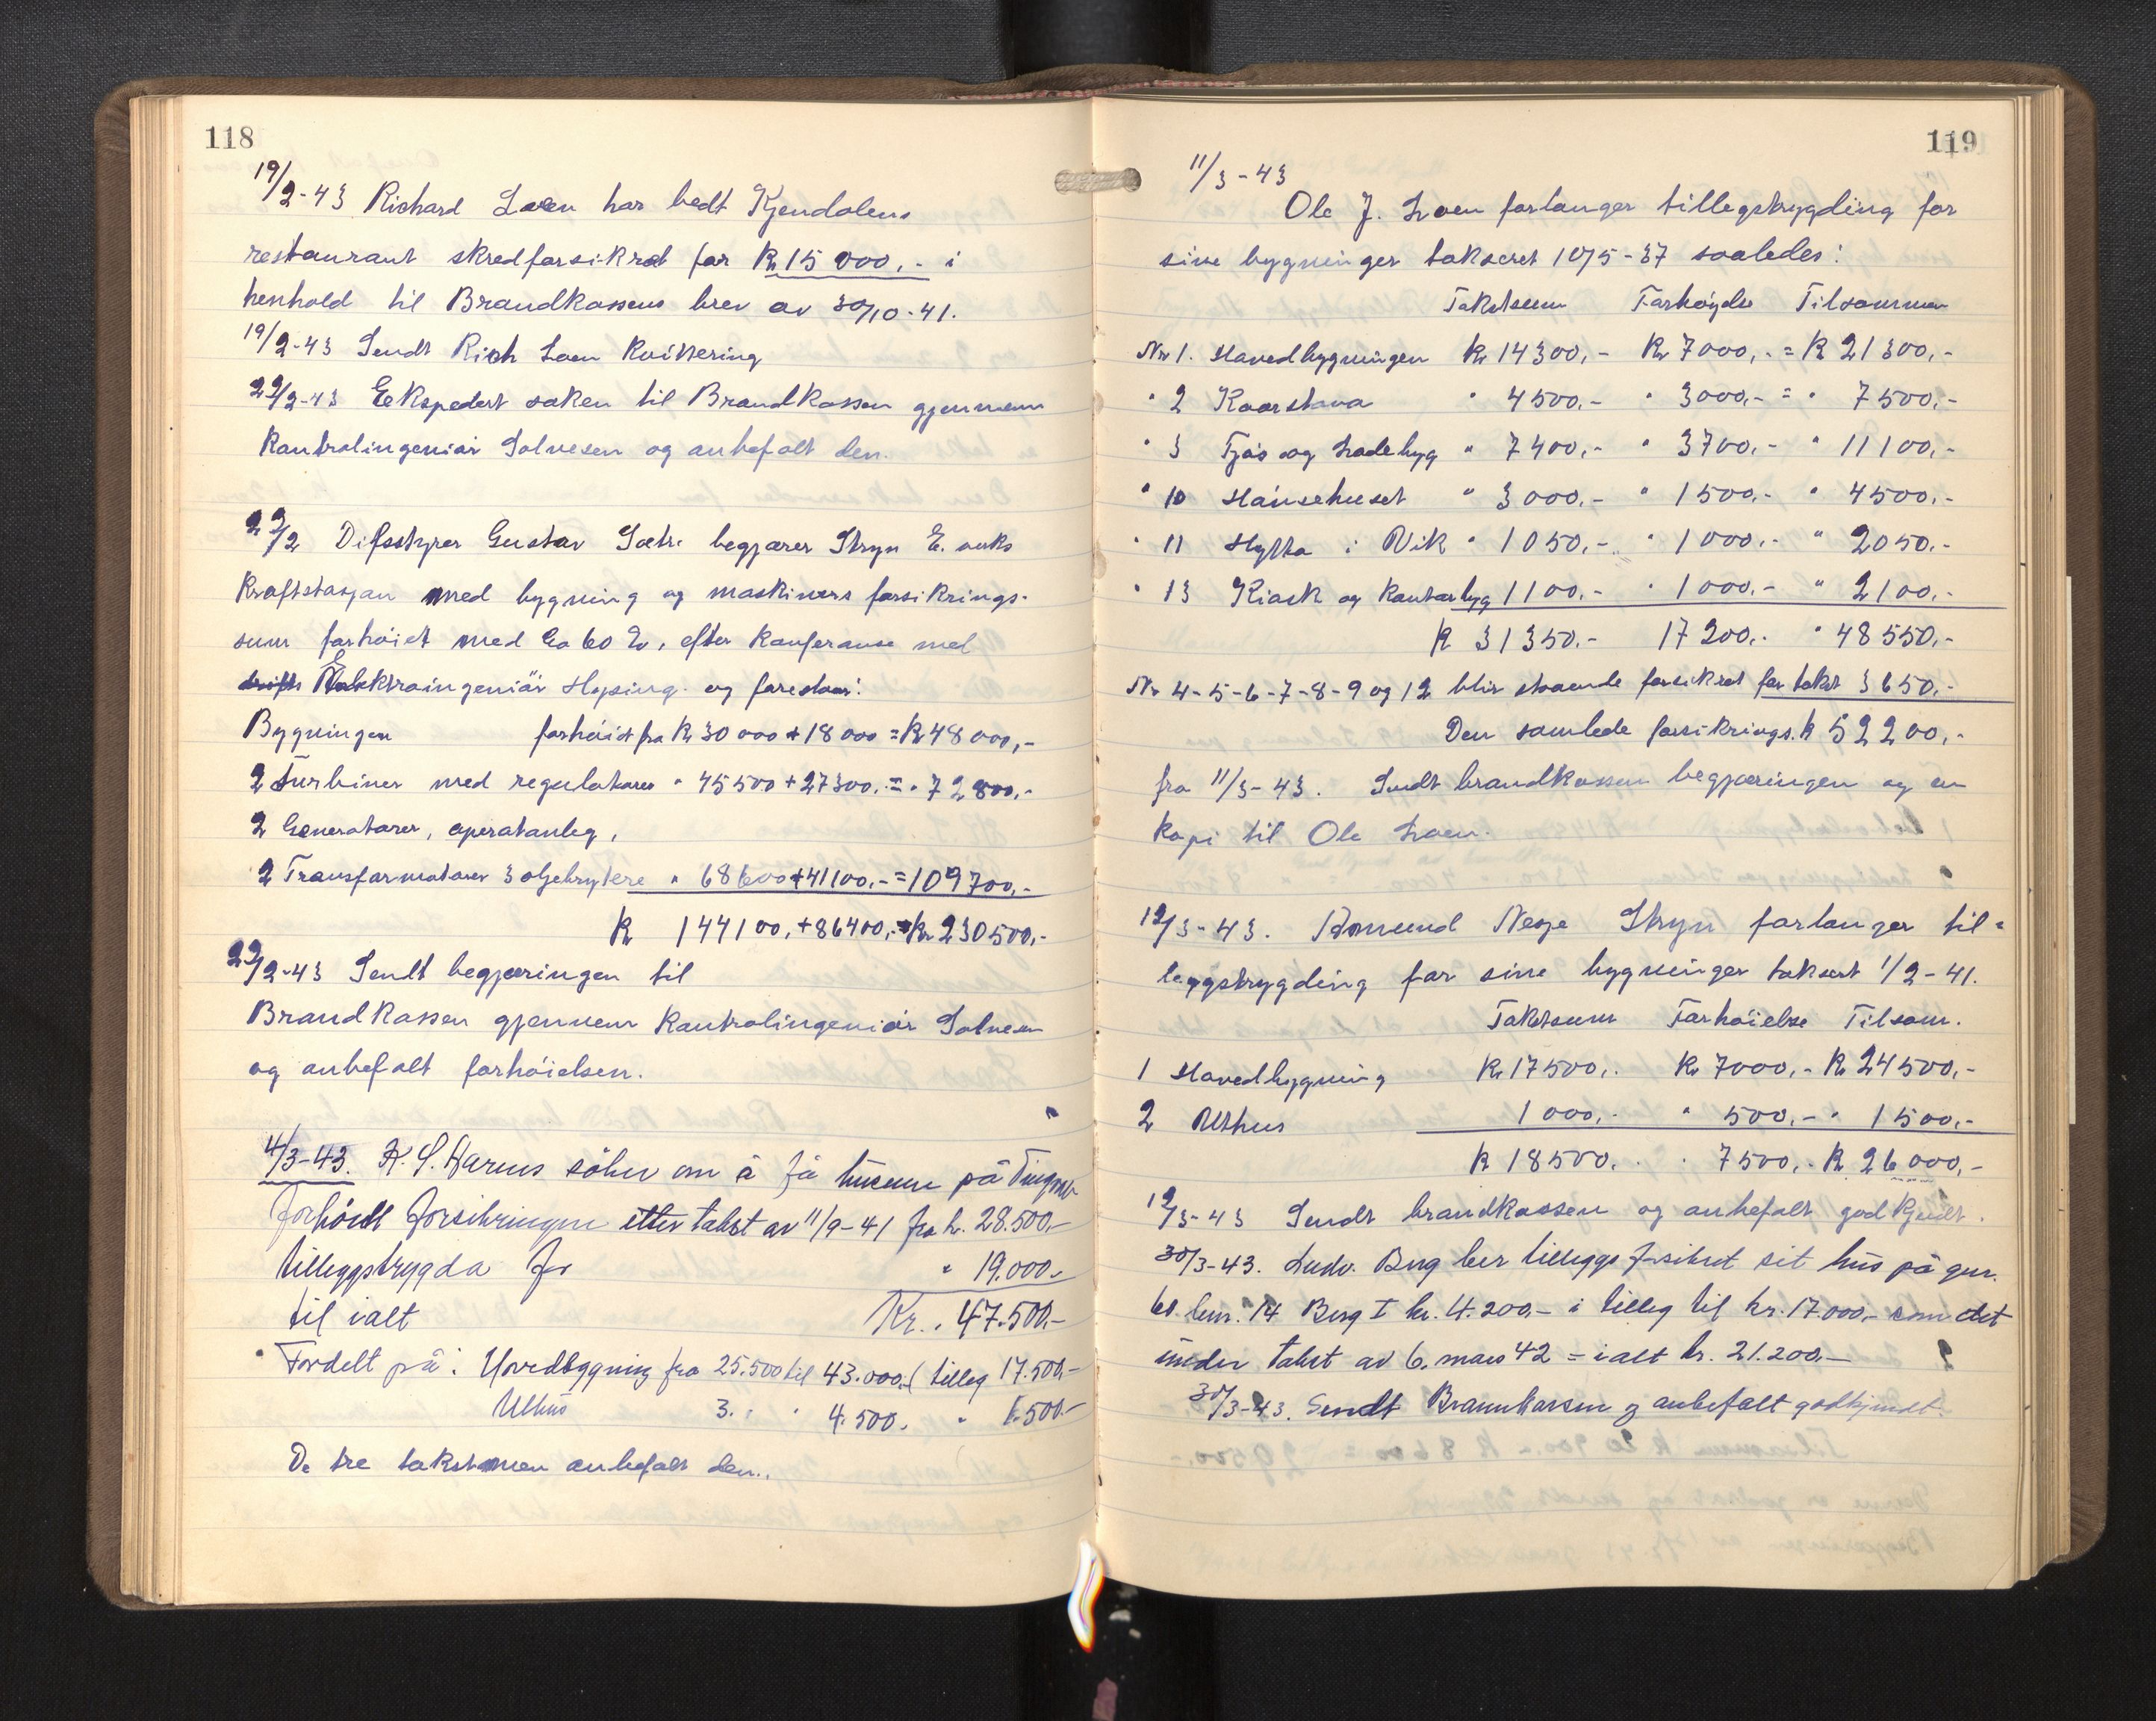 118
19/2-43 Richard Loen har bedt Kjendalens
restaurant skredforsikret for Kr 15 000,- i
henhold til Brandkassens brev av 30/10-41.
19/2-43 Sendt Rich Loen kvittering
22/2-43 Ekspedert saken til Brandkassen gjennem
kontrolingeniør Solvesen og anbefalt den.
22/2 Difsstyrer Gustav Sætr. begjærer Stryn E. verks
kraftstasjon med bygning og maskiners forsikrings-
sum forhøiet med Ca 60 %, efter konferanse med
drifts Elektroingeniør Hysing og foreslaar:
Bygningen forhøidt fra Kr 30 000 + 18 000 = Kr 48 000,-
2 Turbiner med regulatorer " 45500 + 27300,- = " 72 800,-
2 Generatorer, aperatanleg,
2 Transformatorer 3 oljebrytere " 68600 + 41100,- = 109700,-
Kr 144100, + 86400,- = Kr 230500,-
22/2-43 Sendt begjæringen til
Brandkassen gjennem kontrolingeniør Solvesen
og anbefalt forhøielsen.
4/3-43. K. S. søker om å få husene på
forhöidt forsikringen etter takst av 11/9-41 fra kr. 28.500,-
tilleggstrygda for " 19.000,-
til ialt Kr. 47.500,-
Fordelt på: Hovedbygning fra 25.500 til 43.000,- ( tilleg 17.500,-
Uthus 3. " " 4.500. " 1.500,-
De tre takstmen anbefalt den.
119
11/3-43
Ole J. Loen forlanger tillegstrygding for
sine bygninger takseret 10/5-37 saaledes:
Takstsum Forhøyelse Tilsammen
Nr 1. Hovedbygningen Kr 14300,- Kr 7000,- = Kr 21300,-
" 2 Kaarstova " 4500,- " 3000,- = " 7500,-
" 3 Fjøs og Ladebyg " 7400,- " 3700,- " 11100,-
" 10 Hønsehuset " 3000,- " 1500,- " 4500,-
" 11 Hytta i Vik " 1050,- " 1000,- " 2050,-
" 13 Kiosk og kontorbyg 1100,- " 1000,- " 2100,-
Kr 31350,- 17200,- " 48550,-
Nr 4-5-6-7-8-9 og 12 blir staaende forsikret for takst 3650,-
Den samlede forsikrings. kr 52200,-
fra 11/3-43. Sendt brandkassen begjæringen og en
kopi til Ole Loen.
12/3-43. Nesje Stryn forlanger til-
leggstrygding for sine bygninger taksert 1/2-41.
Takstsum Forhøielse Tilsam.
1 Hovedbygning Kr 17500,- Kr 7000,- Kr 24500,-
2 Uthus 1000,- " 500,- " 1500,-
Kr 18500,- " 7500,- Kr 26000,-
12/3-43 Sendt brandkassen og anbefalt godkjendt.
30/3-43. Ludv. Berg ber tilleggsforsikret sit hus på gnr.
60. bnr. 14 Berg I kr. 4.200,- i tilleg til kr. 17.000,- som det
under takst av 6. mars 42 = ialt kr. 21.200,-
30/3-43. Sendt Brannkassen og anbefalt godkjendt.